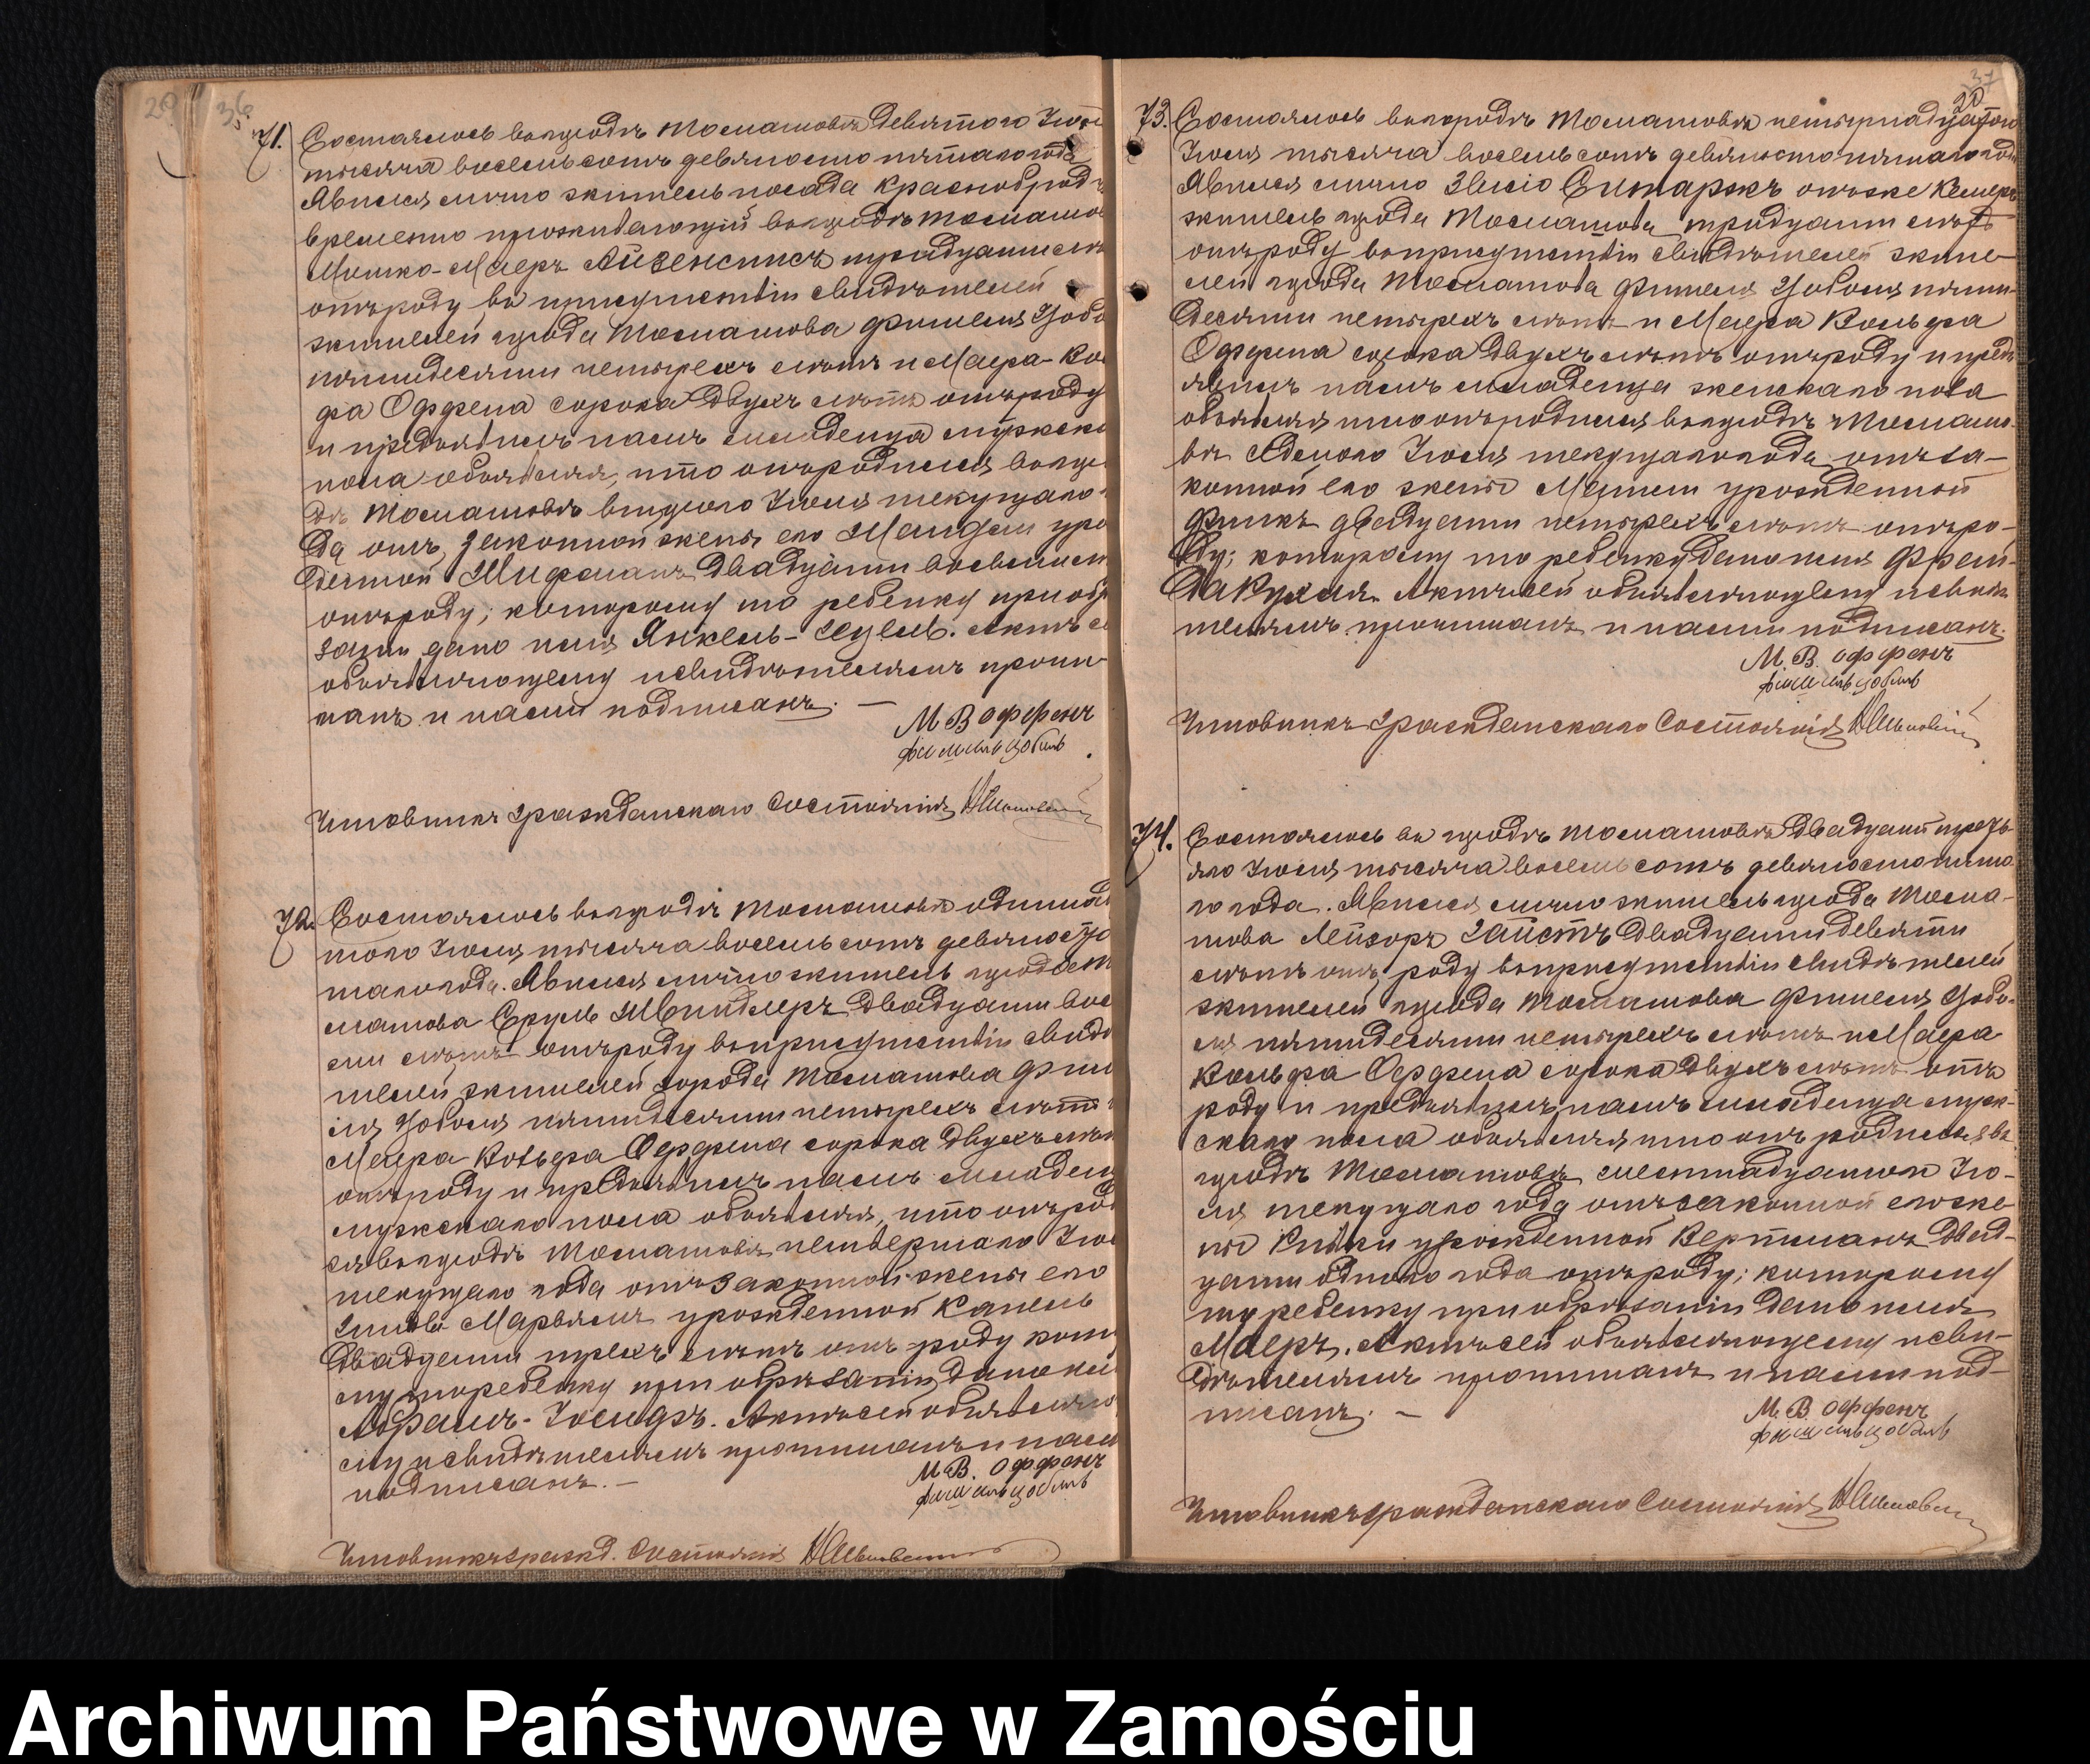 36
71. Состоялось въ городѣ Томашовѣ девятаго Iюл
тысяча восемьсотъ девяносто пятаго года
Явился лично житель посада Краснобродъ
временно проживающiй въ городѣ Томашов
Мошко-Маеръ Айзен тридцати лѣ
отъ роду, въ присутствiи свидѣтелей
жителей города Томашова Фишеля Цобе
пятидесяти четырехъ лѣтъ и Маера-Во
фа Оффена сорока двухъ лѣтъ отъ роду
и предъявилъ намъ младенца мужско
пола объявляя, что онъ родился въ горо
дѣ Томашовѣ втораго Iюля текущаго
да отъ законной жены его уро
денной Шифманъ двадцати восьми
отъ роду; которому то ребенку при обрѣ
занiи дано имя Янкель- Акт с
объявляющему и свидѣтелямъ прочи
танъ и нами подписанъ. —
М В Оффенъ
фишель цобель
Чиновникъ Гражданскаго Состоянiя
72. Состоялось въ городѣ Томашовѣ одиннад
таго Iюля тысяча восемьсотъ девяносто
таго года. Явился лично житель города Т
машова Сруль Швиндлеръ двадцати вос
ми лѣтъ отъ роду въ присутствiи свидѣ
телей жителей города Томашова Фиш
ля Цобеля пятидесяти четырехъ лѣтъ
Маера-Вольфа Оффена сорока двухъ лѣт
отъ роду и предъявилъ намъ младен
мужскаго пола объявляя, что онъ род
ся въ городѣ Томашовѣ четвертаго Iюл
текущаго года отъ законной жены его
Марьямъ урожденной Капель
двадцати трехъ лѣтъ отъ роду кото
му то ребенку при обрѣзанiи дано им
Абрамъ-Iосифъ. Актъ сей объявляю
му и свидѣтелямъ прочитанъ и нам
подписанъ. —
М В. Оффенъ
фишель цобель
Чиновникъ гражд. Состоянiя
37
20
73. Состоялось въ городѣ Томашовѣ четырнадцатого
Iюля тысяча восемьсотъ девяносто пятаго года
Явился лично Зысiо онъ же
житель города Томашова тридцати лѣтъ
отъ роду въ присутствiи свидѣтелей жите-
лей города Томашова Фишеля Цобеля пяти-
десяти четырехъ лѣтъ и Маера Вольфа
Оффена сорока двухъ лѣтъ отъ роду и предъ
явилъ намъ младенца женскаго пола
объявляя что онъ родился въ городѣ Томашо-
вѣ седьмого Iюля текущаго года отъ за-
конной его жены урожденной
Финкъ двадцати четырехъ лѣтъ отъ ро-
ду; которому то ребенку дано имя Фрей-
да Рухля. Актъ сей объявляющему и свидѣ
телямъ прочитанъ и нами подписанъ.
М. В. Оффенъ
фишель цобель
Чиновникъ Гражданскаго Состоянiя
74. Состоялось въ городѣ Томашовѣ двадцать треть-
яго Iюля тысяча восемьсотъ девяносто пята-
го года. Явился лично житель города Тома-
шова Лейзоръ двадцати девяти
лѣтъ отъ роду въ присутствiи свидѣтелей
жителей города Томашова Фишеля Цобе-
ля пятидесяти четырехъ лѣтъ и Маера
Вольфа Оффена сорока двухъ лѣтъ отъ
роду и предъявилъ намъ младенца муж-
скаго пола объявляя что онъ родился въ
городѣ Томашовѣ шестнадцатого Iю-
ля текущаго года отъ законной его же
ны Ривки урожденной Вертманъ двад-
цати одного года отъ роду; которому
то ребенку при обрѣзанiи дано имя
Маеръ. Актъ сей объявляющему и сви-
дѣтелямъ прочитанъ и нами под-
писанъ. —
М. В. Оффенъ
фишель цобель
Чиновникъ гражданскаго Состоянiя
Archiwum Państwowe w Zamościu